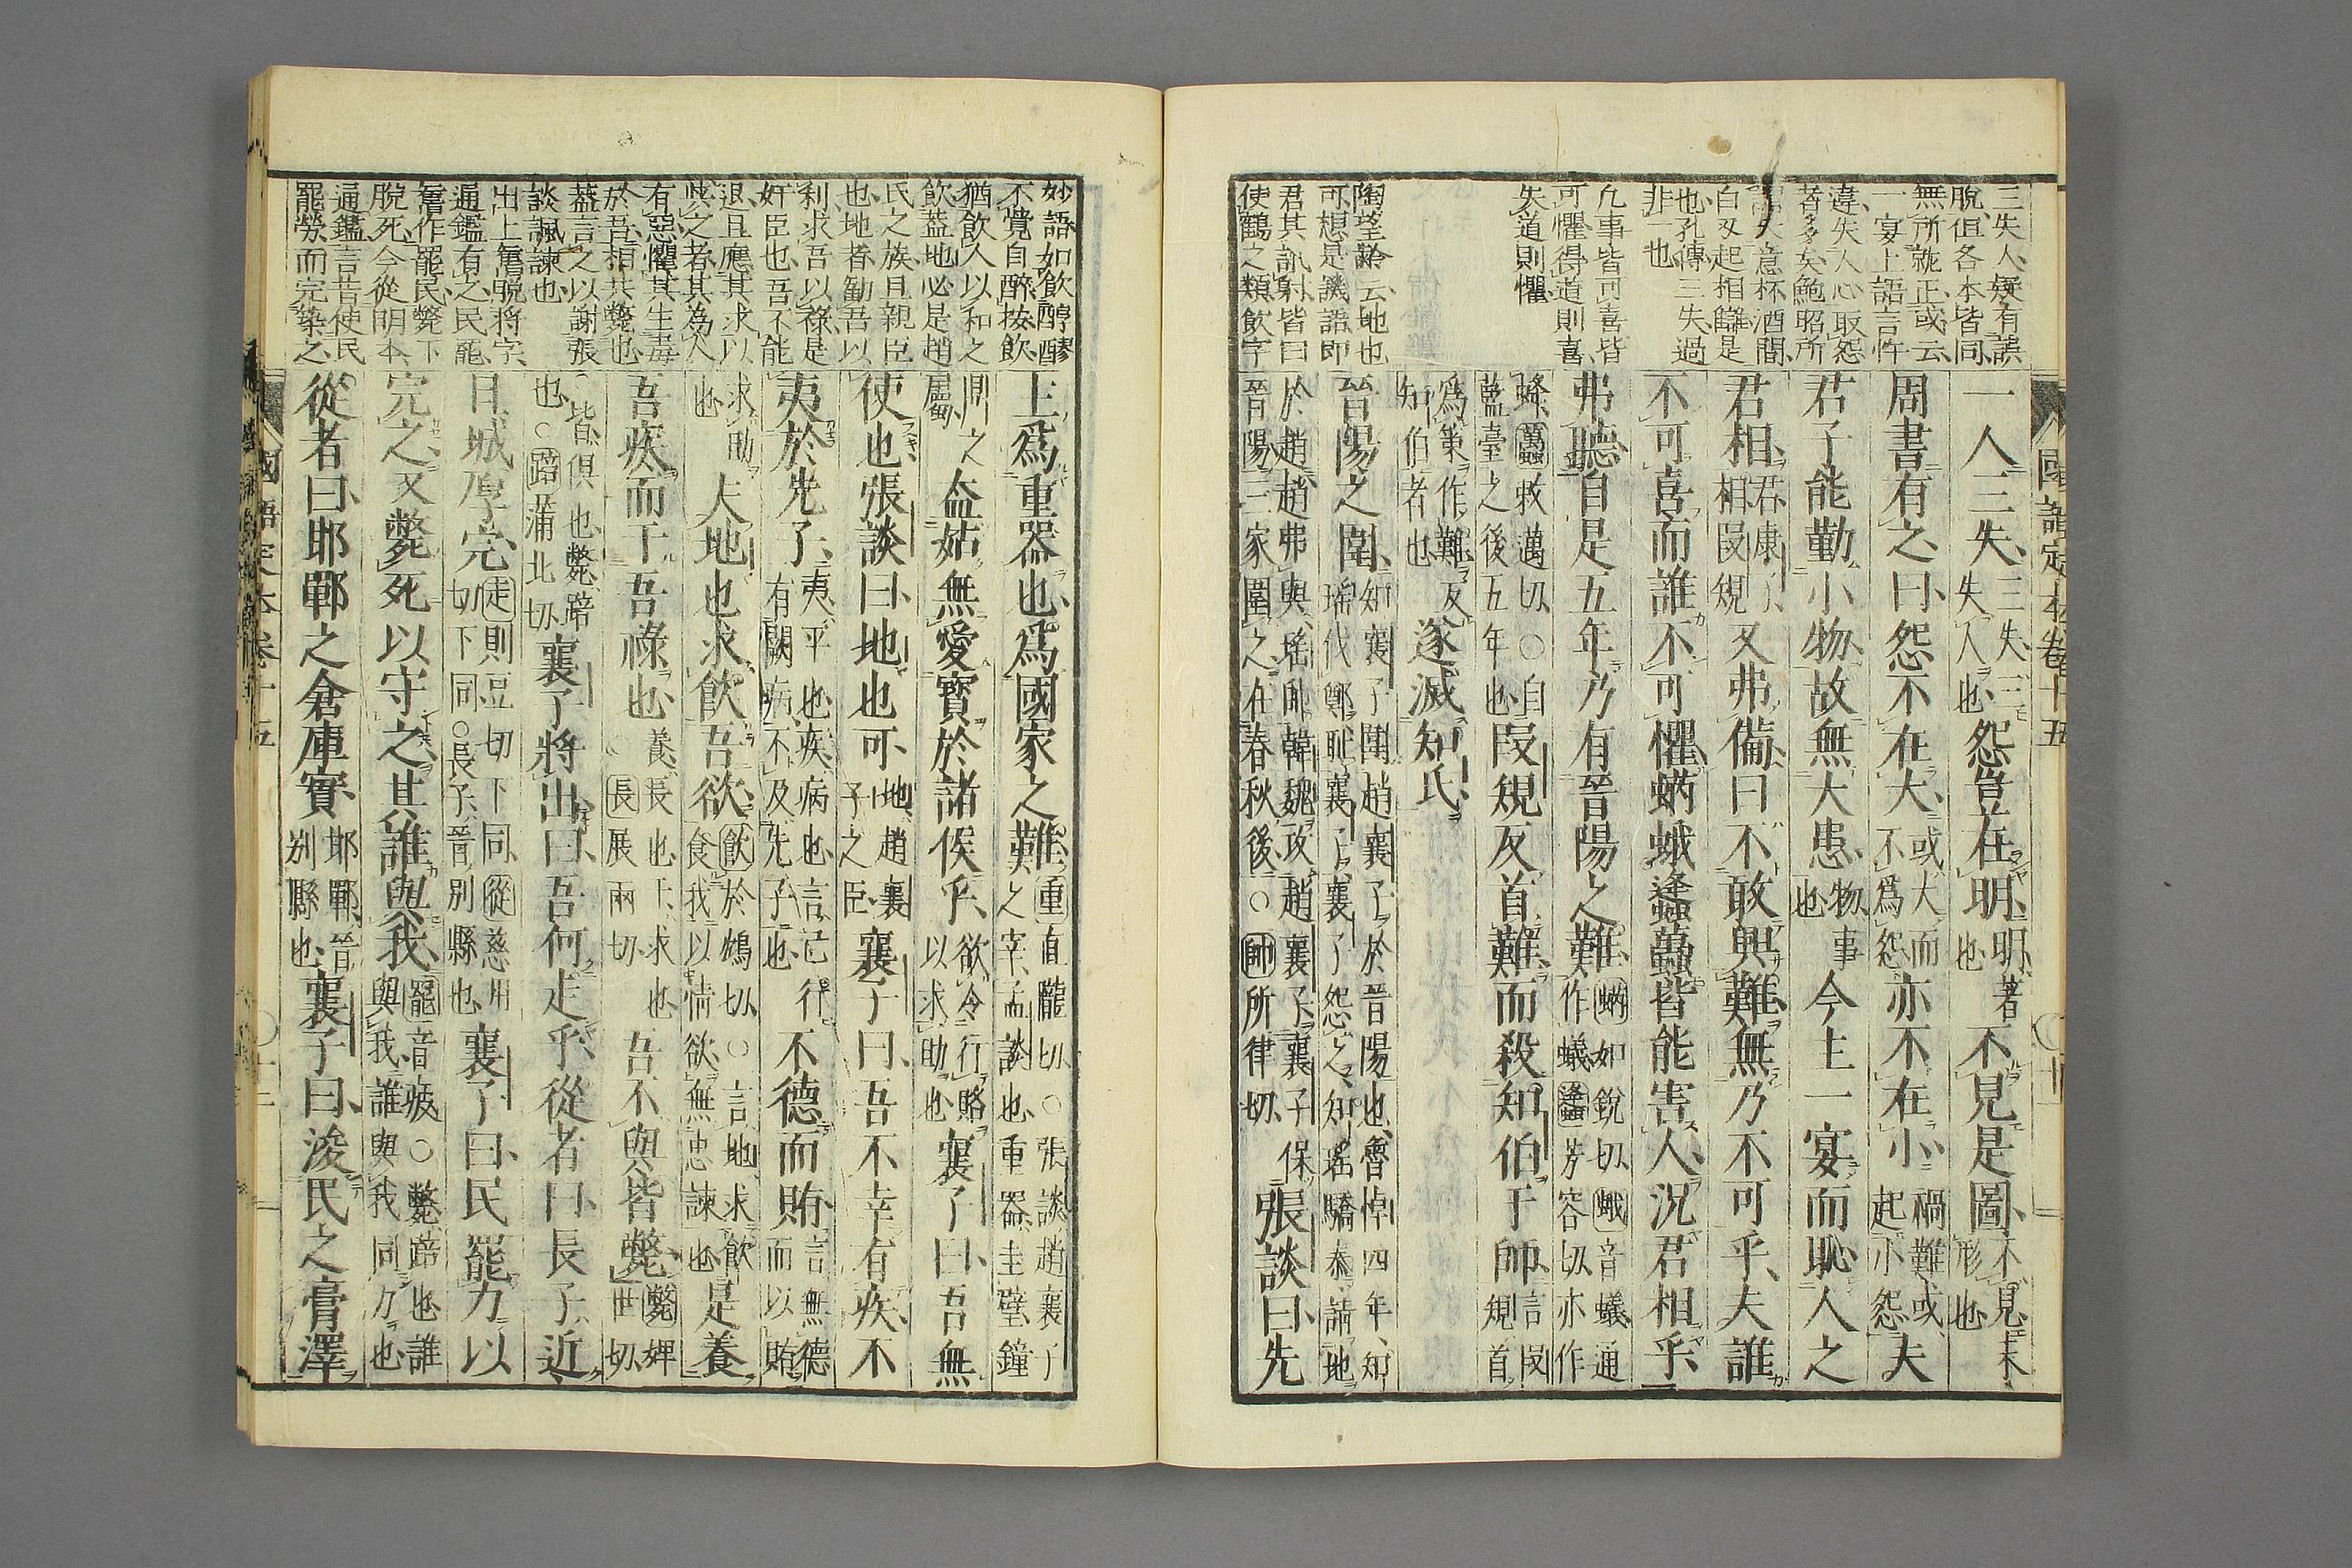 國語定本卷十五
三失人疑有誤
脫但各本皆同
無所就正或云
一宴上語言忤
違失人心取怨
者多矣鮑昭所
白刄起相讎是
也孔傳三失過
非一也
凡事皆可喜皆
可懼得道則喜
失道則懼
陶望齡云地也
可想是譏語即
君其訊射皆曰
使鶴之類飲字
一人三失三失三失人也怨豈在明明著也不見是圖不見未形也
周書有之曰怨不在大或大而不爲怨亦不在小禍難或起小怨夫
君子能勤小物故無大患物事也今主一宴而恥人之
君相君康子相段規又弗備曰不敢興難無乃不可乎夫誰
不可喜而誰不可懼蜹蛾蠭蠆皆能害人況君相乎
弗聽自是五年乃有晉陽之難蜹如銳切蛾音蟻通作蟻蠭芳容切亦作
蜂蠆敕邁切○自藍臺之後五年也段規反首難而殺知伯于師言段規首
爲策作難反知伯者也遂滅知氏
晉陽之圍知襄子圍趙襄子於晉陽也魯悼四年知瑤伐鄭恥襄子襄子怨之知瑤驕泰請地
於趙趙弗與瑤帥韓魏攻趙襄子襄子保晉陽三家圍之在春秋後○帥所律切張談曰先
主爲重器也爲國家之難重直隴切○張談趙襄子之宰孟談也重器圭璧鐘
鼎之屬盍姑無愛寶於諸侯乎欲令行賂以求助也襄子曰吾無
使也張談曰地也可地趙襄子之臣襄子曰吾不幸有疾不
夷於先子夷平也疾病也言己行有闕病不及先子也不德而賄言無德而以賄
求助也夫地也求飲吾欲飲於鴆切○言地求飲食我以情欲無忠諫也是養
吾疾而干吾祿也養長也干求也長展兩切吾不與皆斃斃婢世切
○皆俱也斃踣也○踣蒲北切襄子將出曰吾何走乎從者曰長子近
且城厚完走則豆切下同從慈用切下同○長子晉別縣也襄子曰民罷力以
完之又斃死以守之其誰與我罷音疲○斃踣也誰與我誰與我同力也
從者曰邯鄲之倉庫實邯鄲晉別縣也襄子曰浚民之膏澤
妙語如飲醇醪
不覺自醉按飲
猶飲人以和之
飲蓋地必是趙
氏之族且親臣
也地者勸吾以
利求吾以祿是
奸臣也吾不能
退且應其求以
啖之者其為人
有惡懼其生毒
於吾相共斃也
蓋言之以謝張
談諷諫也
出上舊脫將字
通鑑有之民罷
舊作罷民斃下
脫死今從明本
通鑑言昔使民
罷勞而完築之
國語定本卷十五